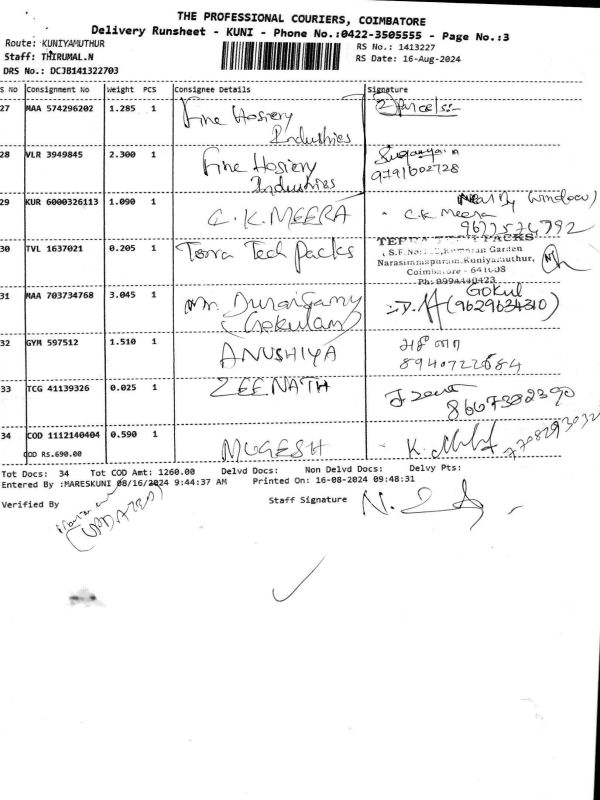 THE PROFESSIONAL COURIERS, COIMBATORE
Delivery Runsheet - KUNI - Phone No.:0422-3505555 - Page No.:3
Route: KUNIYAMUTHUR
RS No.: 1413227
Staff: THIRUMAL.N
RS Date: 16-Aug-2024
DRS No.: DCJB141322703
S No Consignment No Weight PCS Consignee Details Signature
27 MAA 574296202 1.285 1 Fine Hosiery Industries 2 Parcels
28 VLR 3949845 2.300 1 Fine Hosiery Industries Suganya.n
9791602728
29 KUR 6000326113 1.090 1 C.K.MEERA C.K Meera
30 TVL 1637021 0.205 1 Terra Tech Packs
PACKS
Garden
Narasimmapuram, Kuniyamuthur,
Coimbatore - 641008
Ph: 9994440423
31 MAA 703734768 3.045 1 Duraisamy (Gokulan) Gokul
(9629634310)
32 GYM 597512 1.510 1 ANUSHIYA
8940722684
33 TCG 41139326 0.025 1 ZEENATH
8667382390
34 COD 1112140404 0.590 1 MUGESH K.
COD RS.690.00
Tot Docs: 34 Tot COD Amt: 1260.00 Delvd Docs: Non Delvd Docs: Delvy Pts:
Entered By :MARESKUNI 08/16/2024 9:44:37 AM Printed On: 16-08-2024 09:48:31
Verified By Staff Signature
(UPDATED)